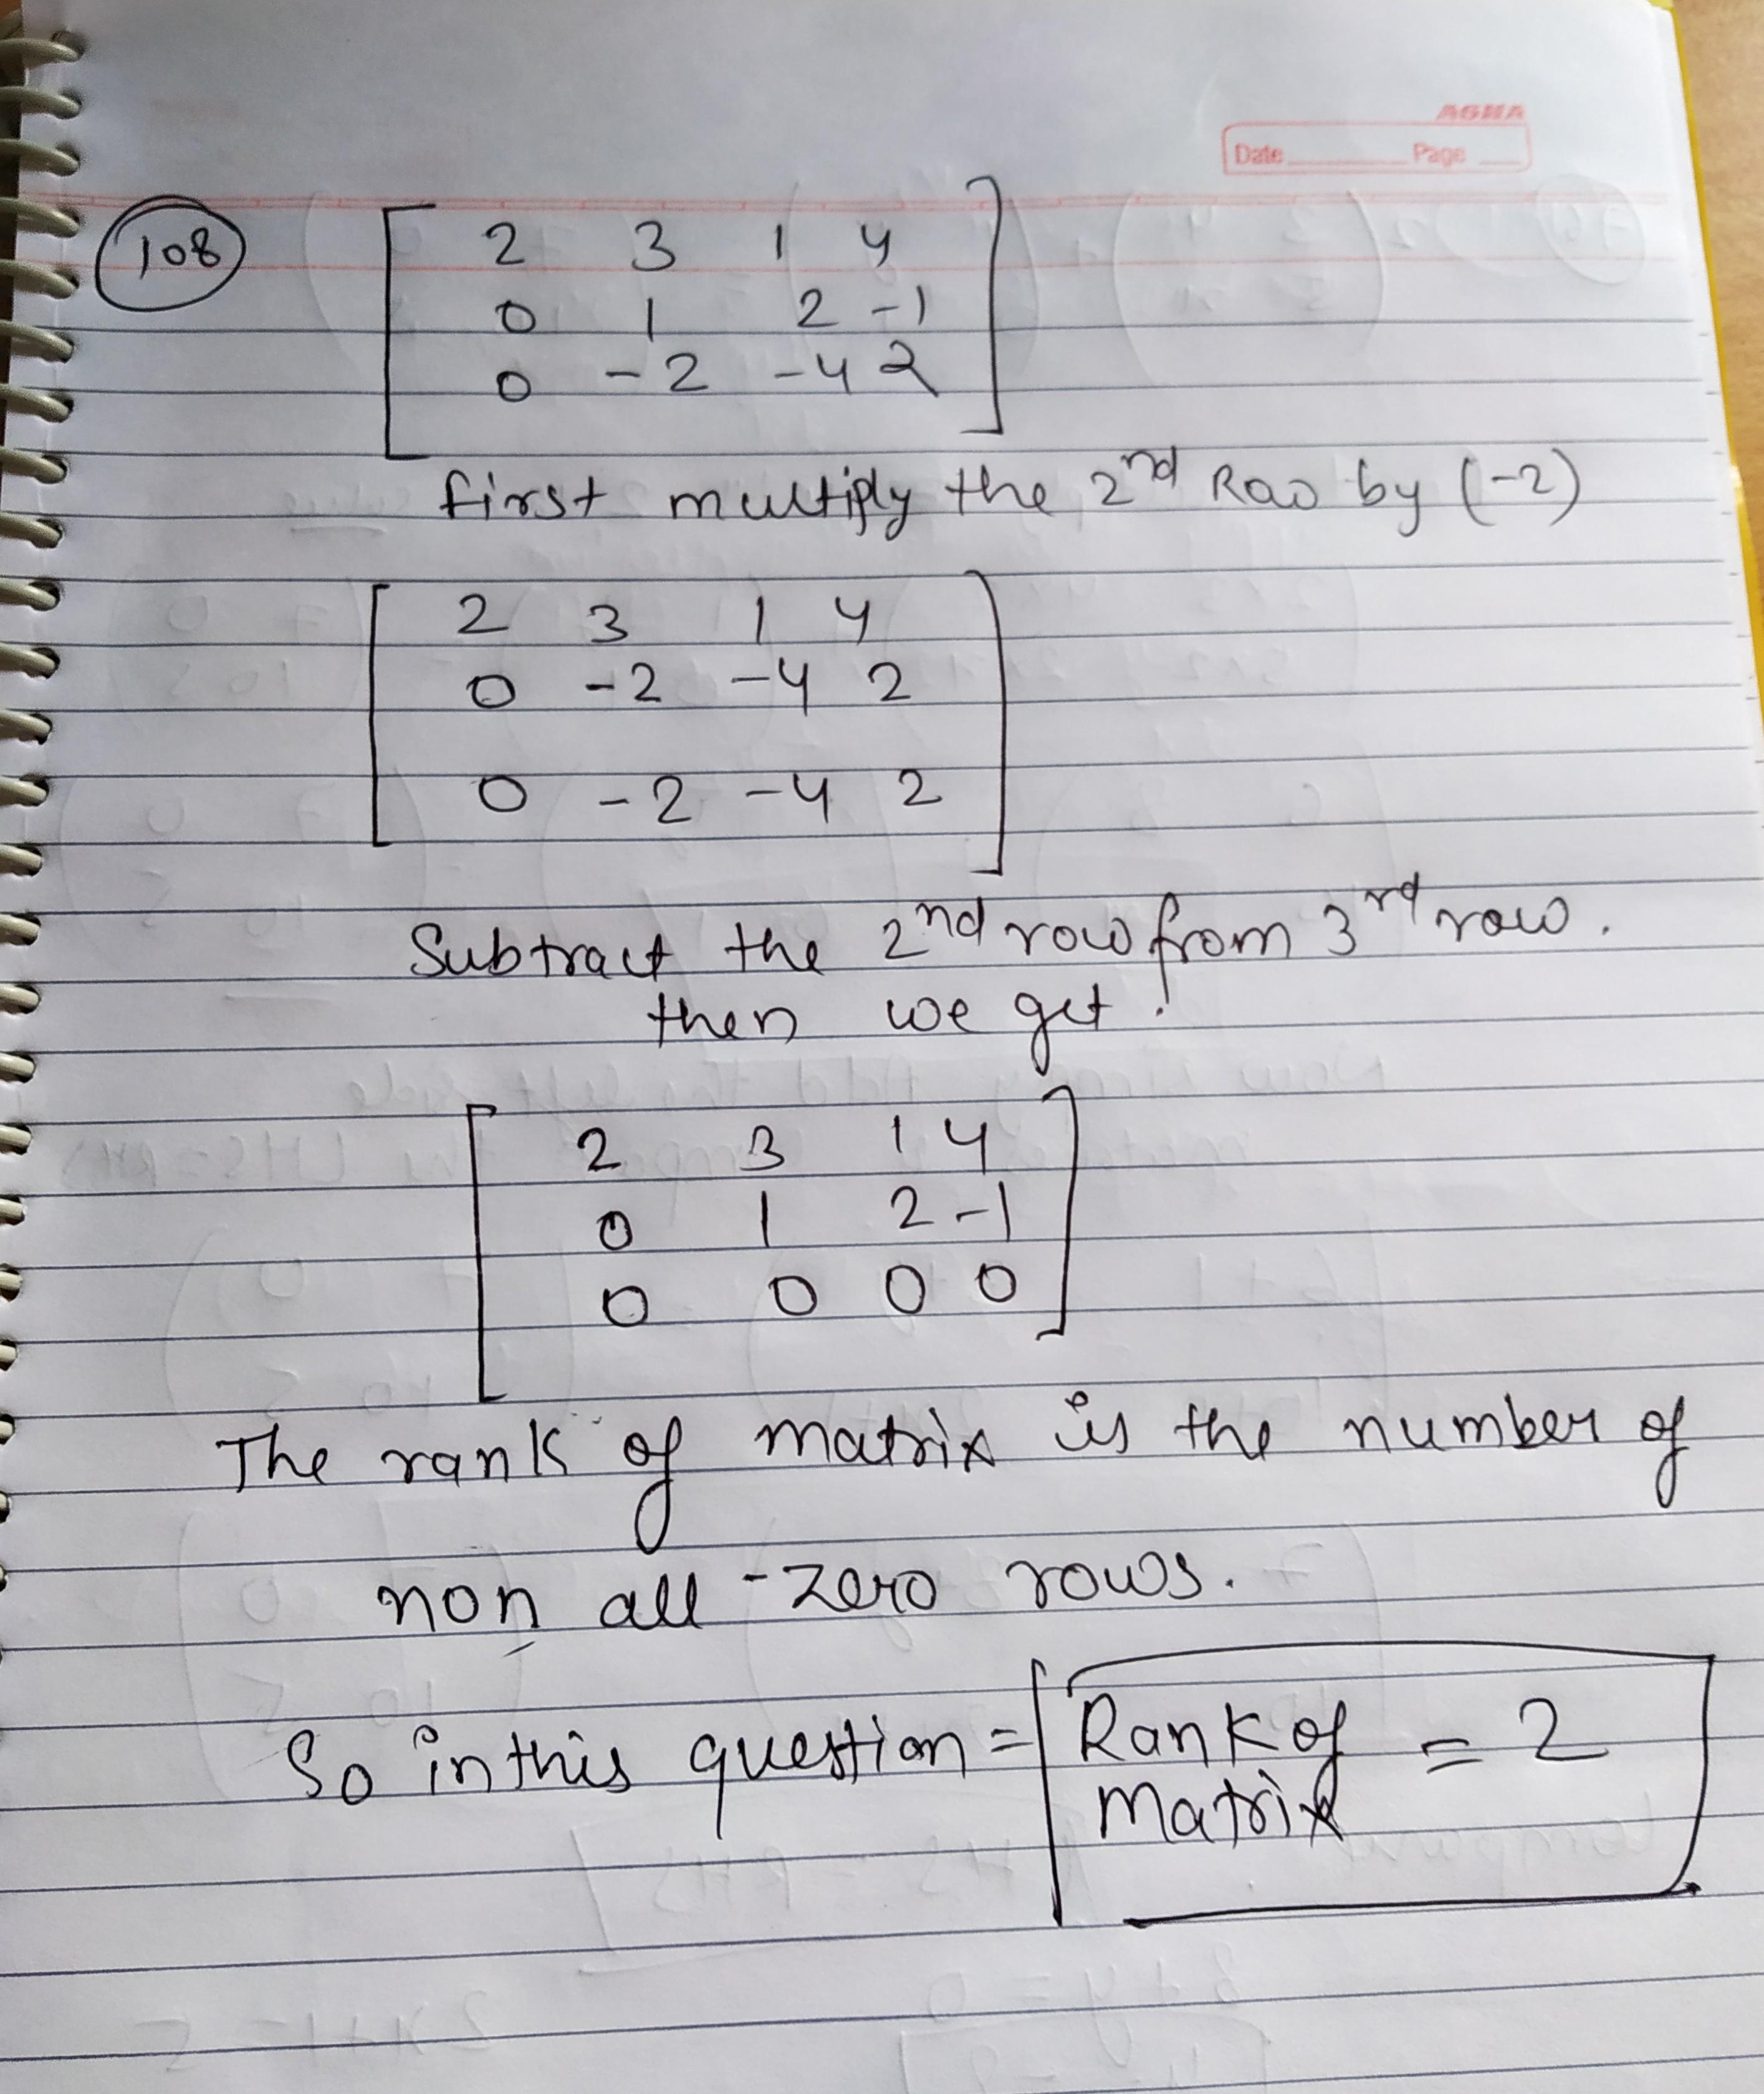 ASMA
Date Page
108
2 3 1 4
0 1 2 -1
0 -2 -4 2
first multiply the 2nd Row by (-2)
2 3 1 4
0 -2 -4 2
0 -2 -4 2
Subtract the 2nd row from 3rd row.
then we get.
2 3 1 4
0 1 2 -1
0 0 0 0
The rank of matrix is the number of
non all-zero rows.
So in this question = Rank of = 2
Matrix